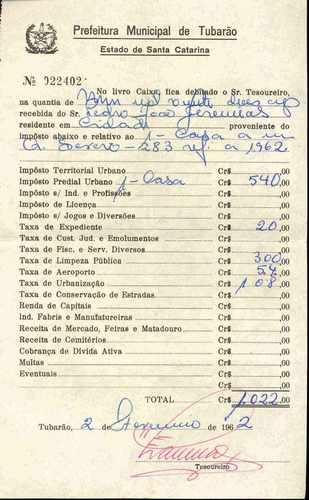 Prefeitura Municipal de Tubarão
Estado de Santa Catarina
Nº 022402
No livro Caixa fica debitado o Sr. Tesoureiro,
na quantia de Hum mil vinte dois crs
recebida do Sr. Pedro João Jeremias
residente em Cidade proveniente do
impôsto abaixo e relativo ao 1- Casa a
Severo - 283 ref. a 1962
Impôsto Territorial Urbano Cr$ ,00
Impôsto Predial Urbano 1- Casa Cr$ 540,00
Impôsto s/ Ind. e Profissões Cr$ ,00
Impôsto de Licença Cr$ ,00
Impôsto s/ Jogos e Diversões Cr$ ,00
Taxa de Expediente Cr$ 20,00
Taxa de Cust. Jud. e Emolumentos Cr$ ,00
Taxa de Fisc. e Serv. Diversos Cr$ ,00
Taxa de Limpeza Pública Cr$ 300,00
Taxa de Aeroporto Cr$ 54,00
Taxa de Urbanização Cr$ 108,00
Taxa de Conservação de Estradas Cr$ ,00
Renda de Capitais Cr$ ,00
Ind. Fabris e Manufatureiras Cr$ ,00
Receita de Mercado, Feiras e Matadouro Cr$ ,00
Receita de Cemitérios Cr$ ,00
Cobrança de Dívida Ativa Cr$ ,00
Multas Cr$ ,00
Eventuais Cr$ ,00
Cr$ ,00
TOTAL Cr$ 1.022,00
Tubarão, 2 de de 1962
Tesoureiro